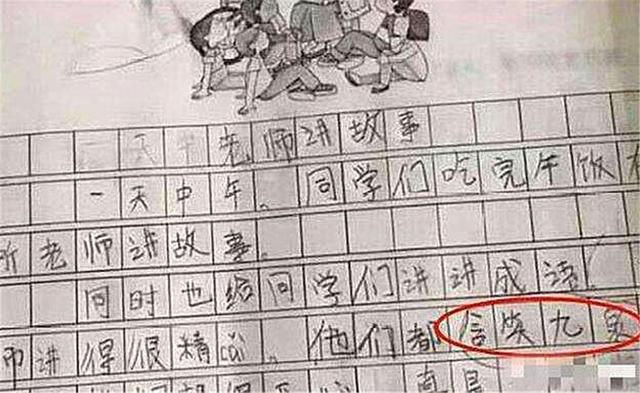 一天午老师讲故事
一天中午。同学们吃完午饭
听老师讲故事。
同时也给同学们讲讲成语
师讲得很精。他们都信笑九泉
真是